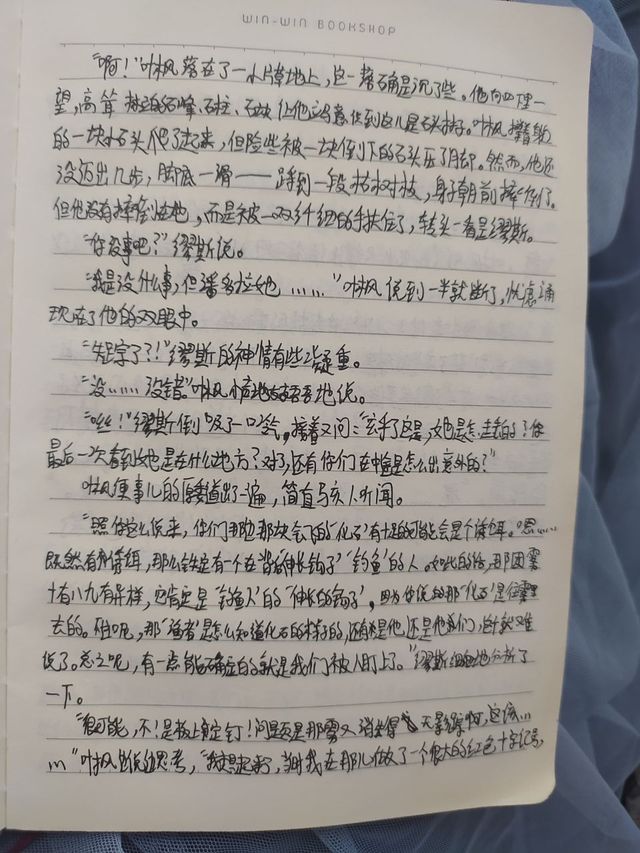 WIN-WIN BOOKSHOP
“啊！”叶枫落在了一小片草地上，这一落确是沉了些。他向四埋一
望，高耸 的石峰、石柱、石块让他立马意识到这儿是石头林子。叶枫撑着身边
的一块小石头爬了起来，但险些被一块倒下的石头压了脚。然而，他还
没迈出几步，脚底一滑——踩到一段枯树枝，身子朝前摔倒了。
但他没有摔倒在地，而是被一双纤细的手扶住了，转头一看是缪斯。
“你没事吧？”缪斯说。
“我是没什么事，但潘多拉她……”叶枫说到一半就断了，忧虑涌
现在了他的双眼中。
“失踪了？！”缪斯的神情有些凝重。
“没……没错”叶枫 支支吾吾地说。
“咝！”缪斯倒吸了一口冷气，接着又问：“玄乎了这是，她是怎么走的？你
最后一次看到她是在什么地方？对了，还有你们在中途是怎么出意外的？”
叶枫便事儿的原委道出了一遍，简直骇人听闻。
“照你这么说来，你们 那块 的‘化石’有十足的可能会是个诱饵。”恩……
既然有 诱饵，那么铁定有一个在背后‘伸长钩子’‘钓鱼’的人。如此的话，那团雾
十有八九有异样，它肯定是‘钓鱼人’的‘伸长的钩子’，因为你说的那‘化石’是在雾里
去的。但呢，那‘渔者’是怎么知道化石的 的，还有是他，还是他们，这就难
说了。总之呢，有一点能确定的就是我们被人盯上了。”缪斯细细地分析了
一下。
“很可能，不！是板上钉钉！问题是那雾又消失得 无影踪啊，这该……
……”叶枫 思考，“我想起来了，当时我在那儿做了一个很大的红色十字记号，